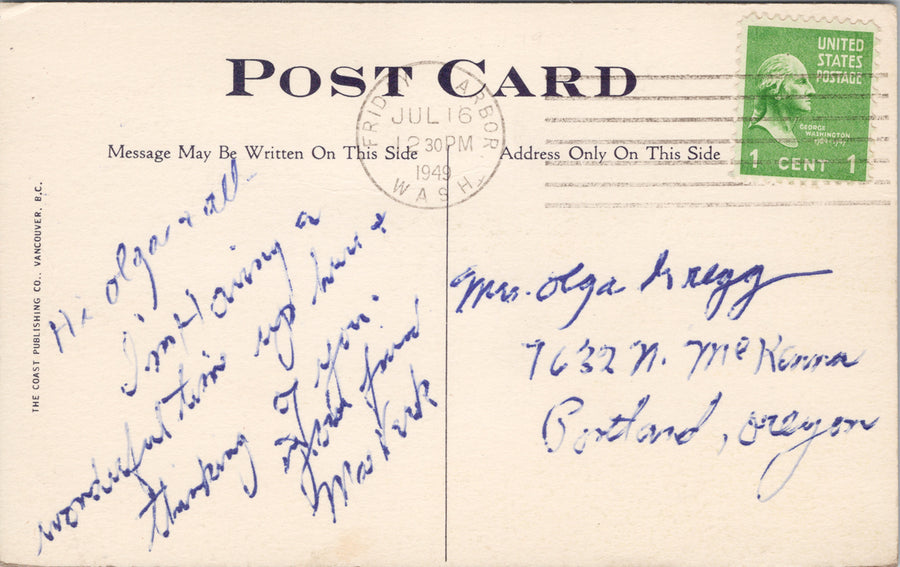 POST CARD
Message May Be Written On This Side
Address Only On This Side
FRIDAY HARBOR
JUL 16
12 30 PM
1949
WASH.
UNITED
STATES
POSTAGE
GEORGE
WASHINGTON
1 CENT 1
THE COAST PUBLISHING CO., VANCOUVER, B.C.
Hi Olga & all-
I'm having a
wonderful time up here &
thinking of you.
Your friend
Mrs. Olga Gregg
7632 N. McKenna
Portland, Oregon